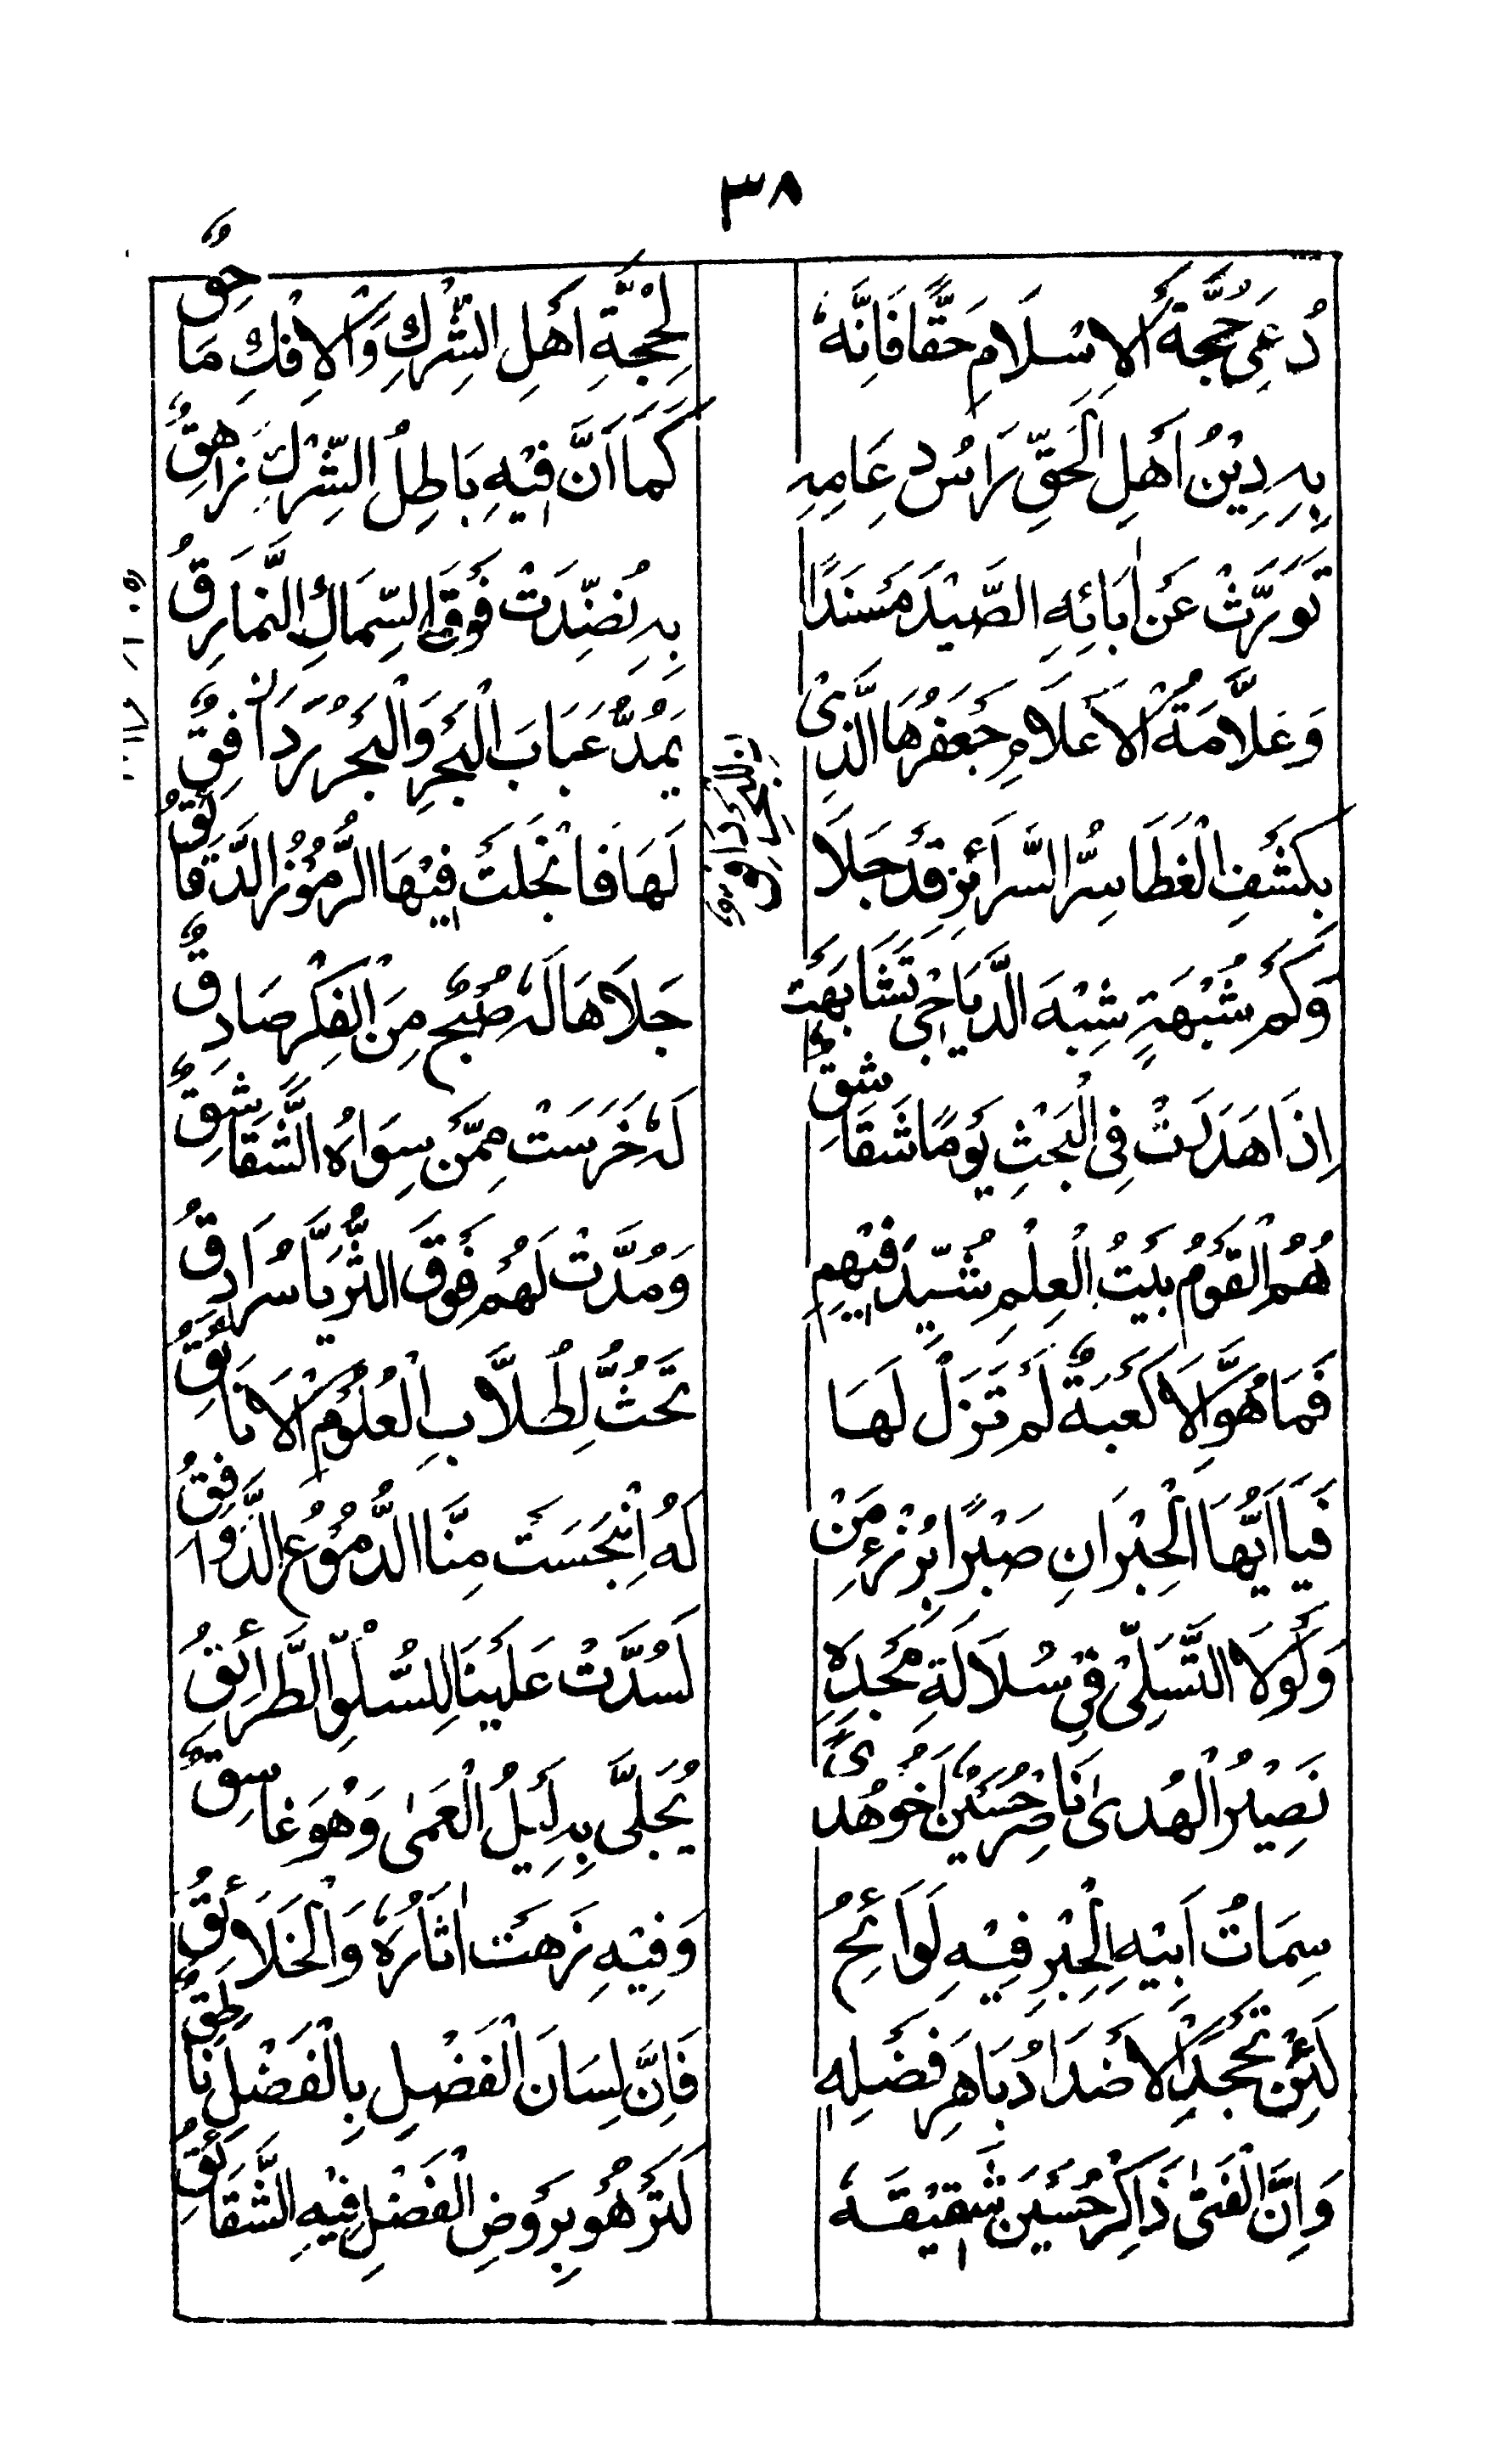 ٣٨
دُعِىَ حُجَّةَ الْاِسْلَامِ حَقًّا فَاِنَّهٗ
لِحُجَّةِ اَهْلِ الشِّرْكِ وَالْاِفْكِ مَاحِقٌ
بِهٖ دِيْنُ اَهْلِ الْحَقِّ رَاسٍ دِعَامِهٖ
كَمَا اَنَّ فِيْهِ بَاطِلُ الشِّرْكِ زَاهِقٌ
تَوَرَّثَ عَنْ اٰبَائِهِ الصَّيْدَ مَسْنَدًا
بِهٖ نُضِّدَتْ فَوْقَ السِّمَاكِ النَّمَارِقُ
وَعَلَّامَةُ الْاَعْلَامِ جَعْفَرُهَا الَّذِىْ
يَمُدُّ عَبَابَ الْبَحْرِ وَالْبَحْرُ دَافِقٌ
بِكَشْفِ الْغَطَا سِرَّ السَّرَائِرِ قَدْ جَلَا
لَهَا فَانْجَلَتْ فِيْهَا الرُّمُوْزُ الدَّقَائِقُ
وَكَمْ شُبْهَةٍ شِبْهَ الدَّيَاجِىْ تَشَابَهَتْ
جَلَاهَا لَهٗ صُبْحٌ مِنَ الْفِكْرِ صَادِقٌ
اِذَا هَدَرَتْ فِى الْبَحْثِ يَوْمًا شَقَاشِقٌ
لَهٗ خَرَسَتْ مِمَّنْ سِوَاهُ الشَّقَاشِقُ
هُمُ الْقَوْمُ بَيْتُ الْعِلْمِ شُيِّدَ فِيْهِمِ
وَمُدَّتْ لَهُمْ فَوْقَ الثُّرَيَّا سُرَادِقُ
فَمَا هُوَ اِلَّا كَعْبَةٌ لَمْ تَزَلْ لَهَا
تَحُثُّ لِطُلَّابِ الْعُلُوْمِ الْاَيَانِقُ
فَيَا اَيُّهَا الْحِبْرَانِ صَبْرًا بِرُزْءِ مَنْ
لَهُ انْبَجَسَتْ مِنَّا الدُّمُوْعُ الذَّوَارِفُ
وَلَوْلَا التَّسَلِّىْ فِىْ سُلَالَةِ مَجْدِهٖ
لَسُدَّتْ عَلَيْنَا لِلسُّلُوِّ الطَّرَائِقُ
نَصِيْرُ الْهُدىٰ نَاصِرْ حُسَيْنٌ اَخُوْ هُدًى
يُجَلّٰى بِهٖ لَيْلُ الْعَمىٰ وَهْوَ غَاسِقٌ
سِمَاتُ اَبِيْهِ الْحِبْرِ فِيْهِ لَوَائِحُ
وَفِيْهِ زَهَتْ اٰثَارُهٗ وَالْخَلَائِقُ
لَئِنْ تَجْحَدِ الْاَضْدَادُ بَاهِرَ فَضْلِهٖ
فَاِنَّ لِسَانَ الْفَضْلِ بِالْفَضْلِ نَاطِقٌ
وَاِنَّ الْفَتىٰ ذَاكِرْ حُسَيْنَ شَقِيْقَهٗ
لَتَزْهُوْ بِرَوْضِ الْفَضْلِ فِيْهِ الشَّقَائِقُ